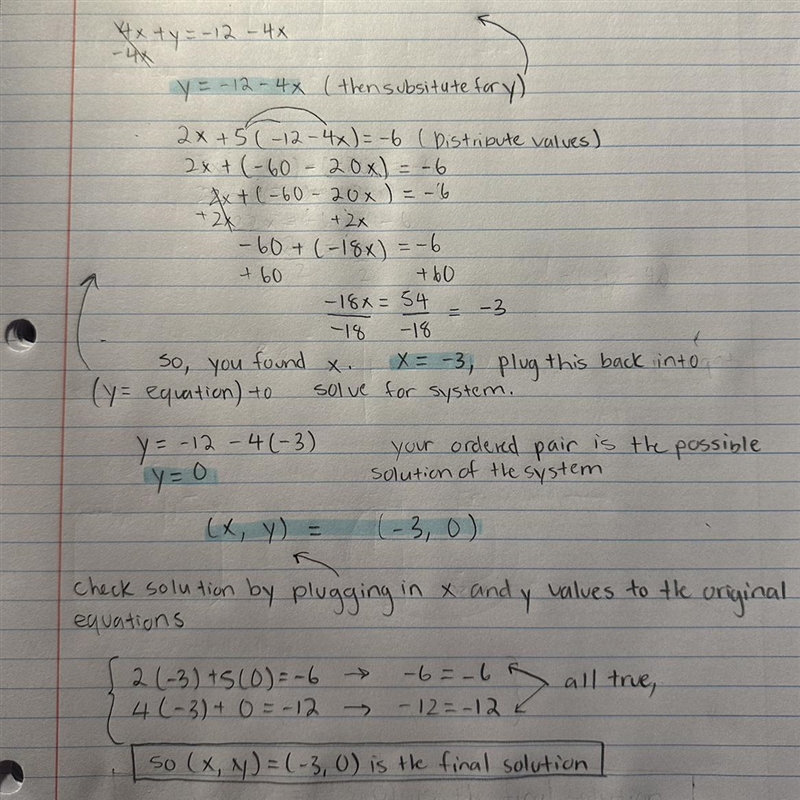 4x + y = -12 - 4x
-4x
y = -12 - 4x (then subsitute for y)
2x + 5(-12 - 4x) = -6 (Distribute values)
2x + (-60 - 20x) = -6
2x + (-60 - 20x) = -6
+2x +2x
-60 + (-18x) = -6
+60 +60
-18x = 54 = -3
-18 -18
so, you found x. x = -3, plug this back into
(y = equation) to solve for system.
y = -12 - 4(-3) your ordered pair is the possible
y = 0 solution of the system
(x, y) = (-3, 0)
check solution by plugging in x and y values to the original
equations
2(-3) + 5(0) = -6 → -6 = -6 all true,
4(-3) + 0 = -12 → -12 = -12
so (x, y) = (-3, 0) is the final solution